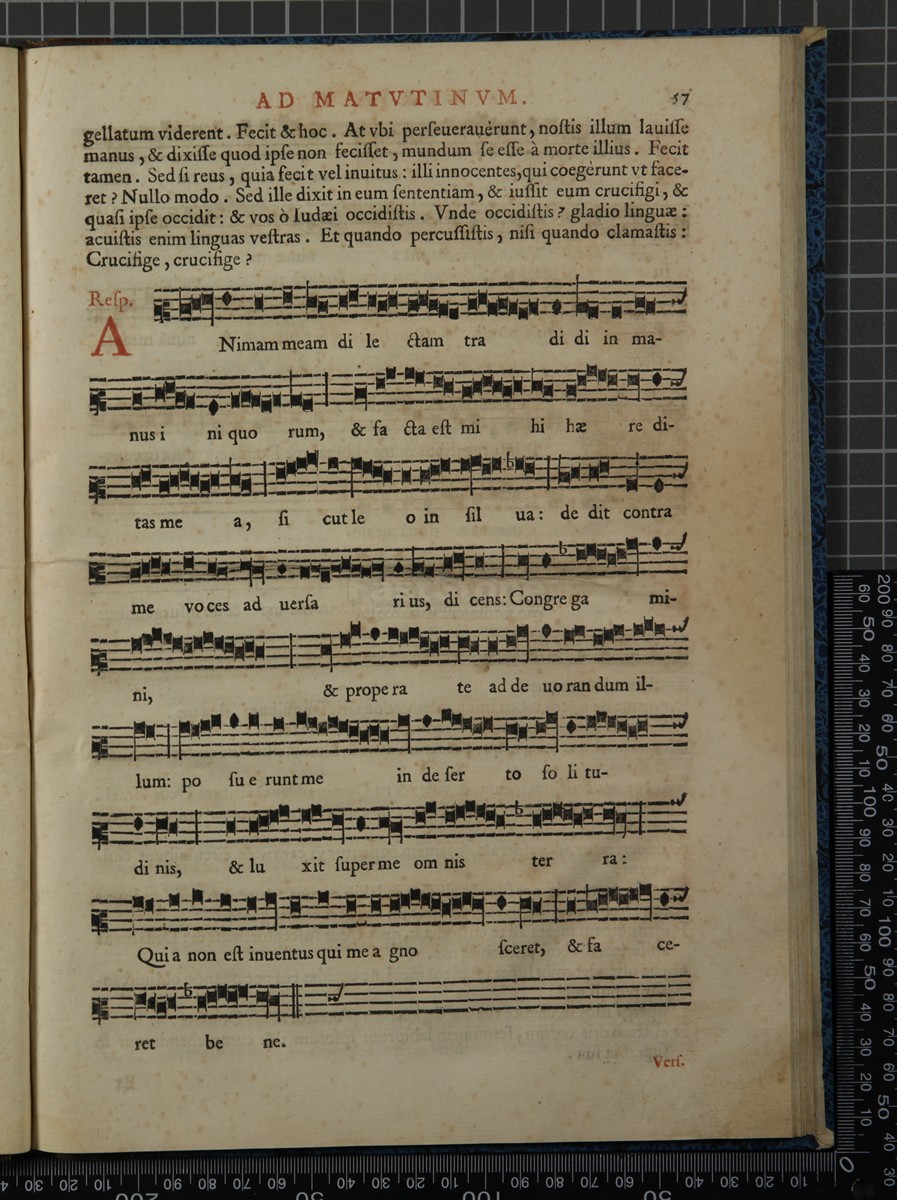 AD MATVTINVM. 57
gellatum viderent. Fecit & hoc. At vbi perſeuerauérunt, noſtis illum lauiſſe
manus, & dixiſſe quod ipſe non feciſſet, mundum ſe eſſe à morte illius. Fecit
tamen. Sed ſi reus, quia fecit vel inuitus: illi innocentes, qui coegérunt vt face-
ret? Nullo modo. Sed ille dixit in eum ſententiam, & iuſſit eum crucifigi, &
quaſi ipſe occidit: & vos ò Iudæi occidiſtis. Vnde occidiſtis? gladio linguæ:
acuiſtis enim linguas veſtras. Et quando percuſſiſtis, niſi quando clamaſtis:
Crucifige, crucifige?
Reſp.
ANimam meam di le ctam tra di di in ma-
nus i ni quo rum, & fa cta eſt mi hi hæ re di-
tas me a, ſi cut le o in ſil ua: de dit contra
me vo ces ad uerſa ri us, di cens: Congre ga mi-
ni, & prope ra te ad de uo ran dum il-
lum: po ſu e runt me in de ſer to ſo li tu-
di nis, & lu xit ſuper me om nis ter ra:
Qui a non eſt inuentus qui me a gno ſceret, & fa ce-
ret be ne.
Verſ.